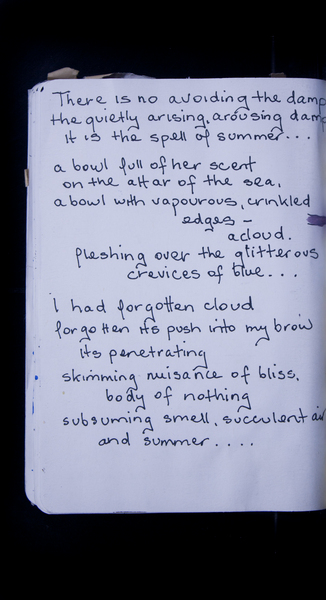 There is no avoiding the damp
the quietly arising, arousing damp
it is the spell of summer...
a bowl full of her scent
on the altar of the sea.
a bowl with vapourous, crinkled
edges -
a cloud.
fleshing over the glitterous
crevices of blue...
I had forgotten cloud
forgotten its push into my brow
its penetrating
skimming nuisance of bliss.
body of nothing
subsuming smell, succulent air
and summer....